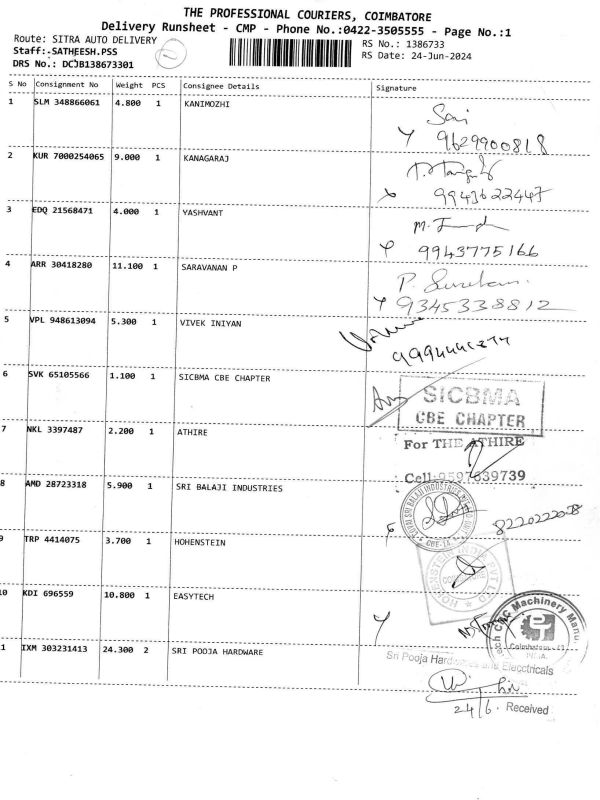 THE PROFESSIONAL COURIERS, COIMBATORE
Delivery Runsheet - CMP - Phone No.:0422-3505555 - Page No.:1
Route: SITRA AUTO DELIVERY
RS No.: 1386733
Staff:-SATHEESH.PSS
RS Date: 24-Jun-2024
DRS No.: DCJB138673301
S No Consignment No Weight PCS Consignee Details Signature
1 SLM 348866061 4.800 1 KANIMOZHI
Sai
9629900818
2 KUR 7000254065 9.000 1 KANAGARAJ
9943622447
3 EDQ 21568471 4.000 1 YASHVANT
9943775166
4 ARR 30418280 11.100 1 SARAVANAN P
9345338812
5 VPL 948613094 5.300 1 VIVEK INIYAN
6 SVK 65105566 1.100 1 SICBMA CBE CHAPTER
SICBMA
CBE CHAPTER
7 NKL 3397487 2.200 1 ATHIRE
For THE ATHIRE
Cell:9597639739
8 AMD 28723318 5.900 1 SRI BALAJI INDUSTRIES
SRI BALAJI INDUSTRIES
CBE-14
9 TRP 4414075 3.700 1 HOHENSTEIN
10 KDI 696559 10.800 1 EASYTECH
CNC Machinery Manu
11 IXM 303231413 24.300 2 SRI POOJA HARDWARE
Sri Pooja Hardwares and Elecctricals
24/6. Received